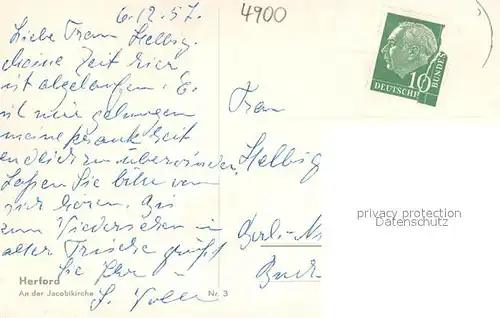 6.12.57.
4900
Liebe Frau Helbig,
meine Zeit hier
ist abgelaufen. Es
ist mir gelungen
meine Krankheit
endlich zu überwinden.
Lassen Sie bitte von
sich hören. Bis
zum Wiedersehen in
alter Frische grüßt
Sie Ihr
10
DEUTSCHE
BUNDES
Frau
Helbig
Berlin-N
privacy protection
Datenschutz
Herford
An der Jacobikirche
Nr. 3